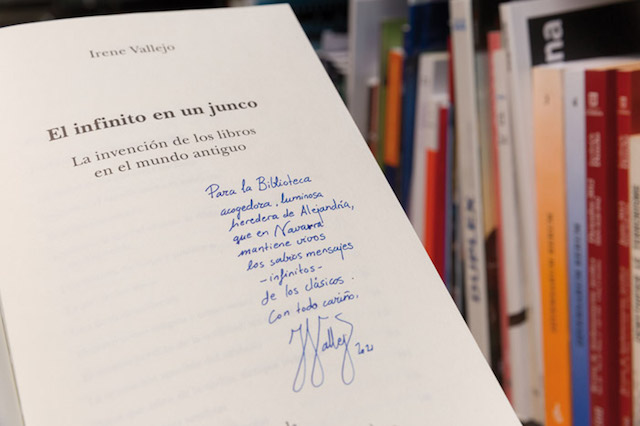 Irene Vallejo
El infinito en un junco
La invención de los libros
en el mundo antiguo
Para la Biblioteca
acogedora, luminosa
heredera de Alejandría,
que en Navarra
mantiene vivos
los sabios mensajes
-infinitos-
de los clásicos.
Con todo cariño,
I Vallejo
2021
DUPLEX
na